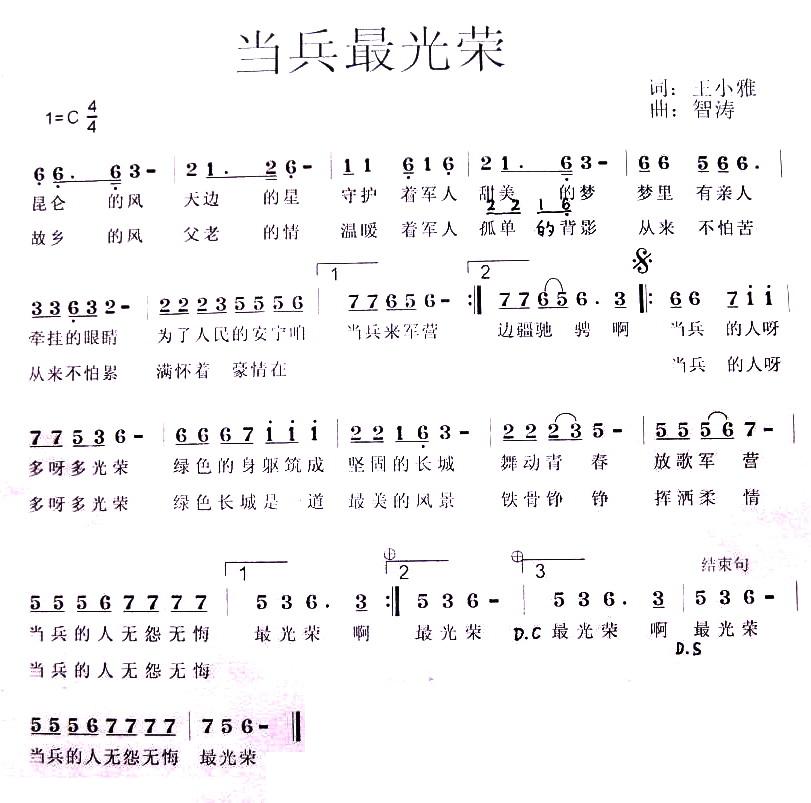 当兵最光荣
词：王小雅
曲：智涛
1=C 4/4
6 6. 6 3 - | 2 1. 2 6 - | 1 1 6 1 6 | 2 1. 6 3 - | 6 6 5 6 6. |
昆仑 的风 天边 的星 守护 着军人 甜美 的梦 梦里 有亲人
2 2 1 6
故乡 的风 父老 的情 温暖 着军人 孤单 的背影 从来 不怕苦
1 2
3 3 6 3 2 - | 2 2 2 3 5 5 5 6 | 7 7 6 5 6 - :‖ 7 7 6 5 6. 3 ‖: 6 6 7 i i |
牵挂的眼睛 为了人民的安宁咱 当兵来军营 边疆驰 骋啊 当兵 的人呀
从来不怕累 满怀着 豪情在 当兵 的人呀
7 7 5 3 6 - | 6 6 6 7 i i i | 2 2 1 6 3 - | 2 2 2 3 5 - | 5 5 5 6 7 |
多呀多光荣 绿色的身躯筑成 坚固的长城 舞动青 春 放歌军 营
多呀多光荣 绿色长城是一道 最美的风景 铁骨铮 铮 挥洒柔 情
1 2 3 结束句
5 5 5 6 7 7 7 7 | 5 3 6. 3 :‖ 5 3 6 - | 5 3 6. 3 | 5 3 6 - |
当兵的人无怨无悔 最光荣 啊 最光荣 D.C 最光荣 啊 最光荣
D.S
当兵的人无怨无悔
5 5 5 6 7 7 7 7 | 7 5 6 - ‖
当兵的人无怨无悔 最光荣